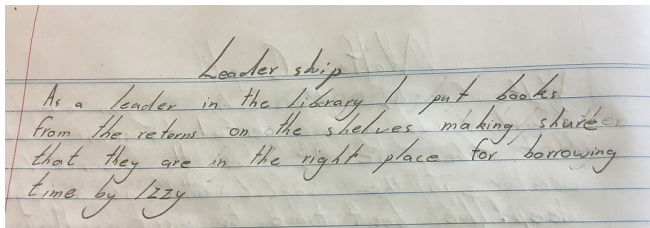 Leader ship
As a leader in the Library I put books
from the reterns on the shelves making shure
that they are in the right place for borrowing
time by Izzy